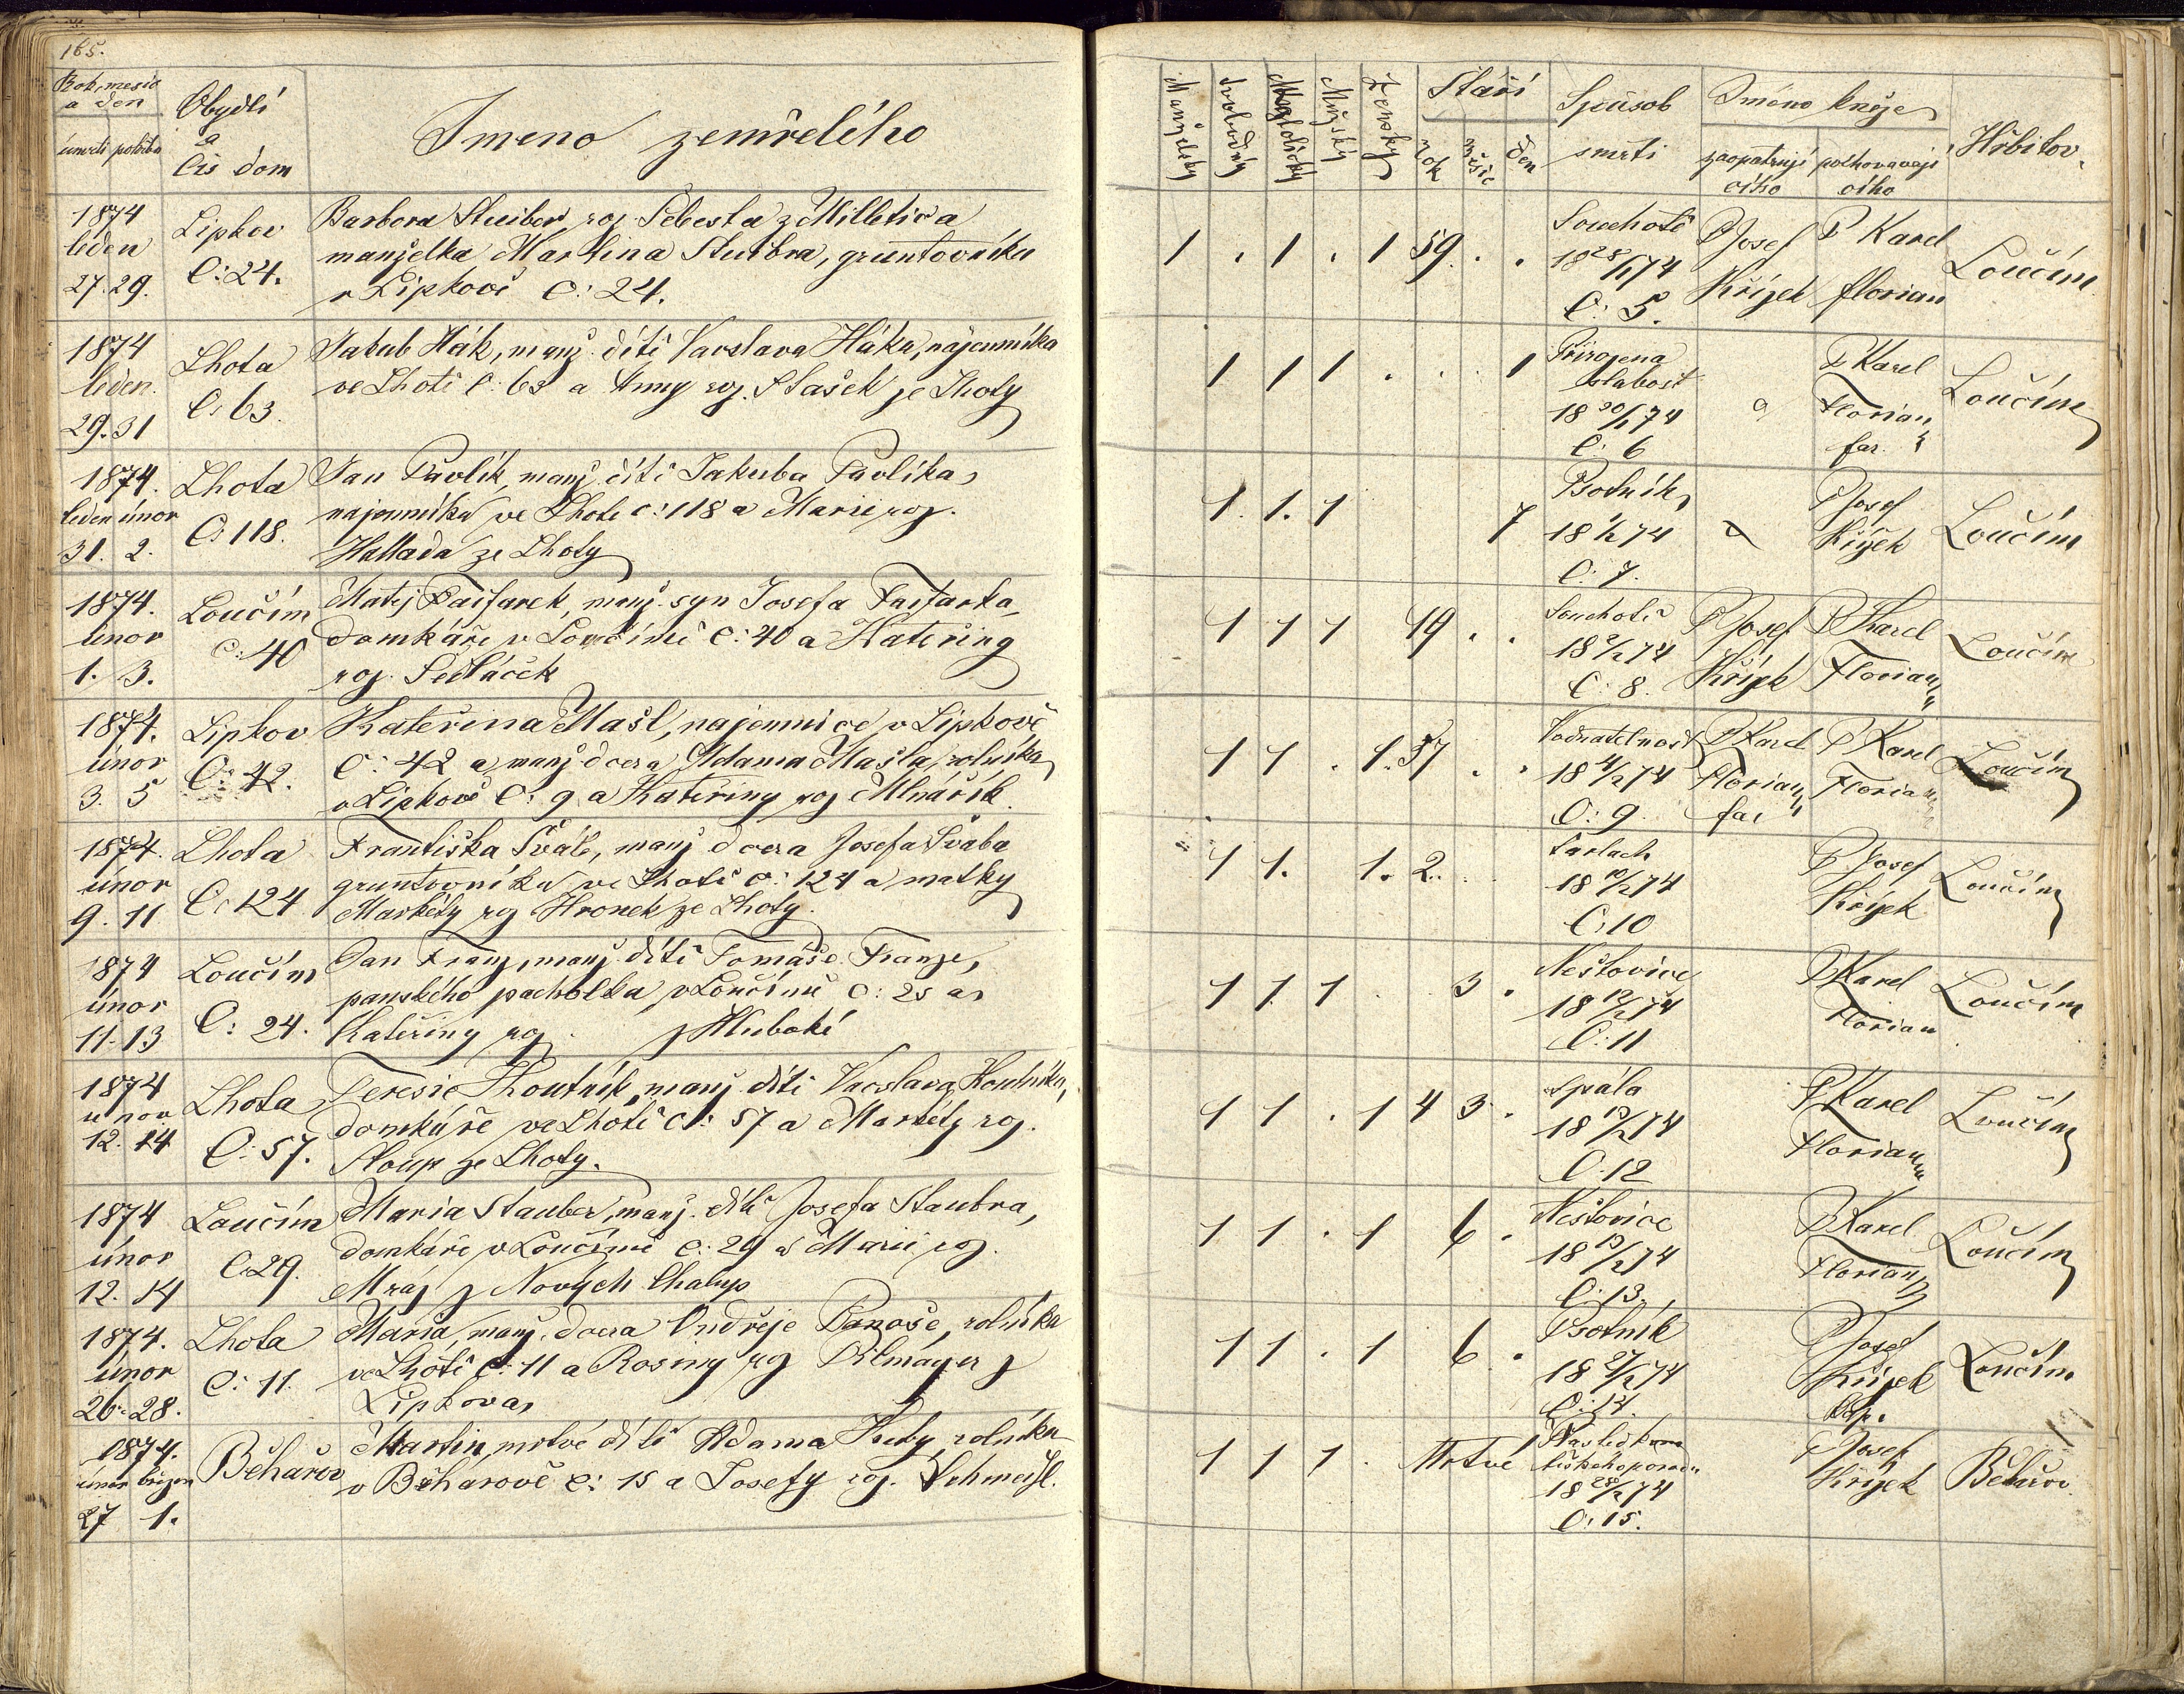 165.
Rok, mesic a den
úmrtí pohřbu
Obydlí
a
Čis dom
Jmeno zemřelého
Manželský
Svobodný
Katolický
Mužský
Ženský
Stáří
rok
měsíc
den
Spůsob
smrti
Jméno kněze
zaopatrují cího
pochovavají cího
Hřbitov
1874
leden
27. 29.
Lipkov
C: 24.
Barbora Steiber roz. Šebesta z Milletic a
manželka Martina Steibra, gruntovníka
v Lipkově C: 24.
1 . 1 . 1 59. . .
Souchotě
18 28/1 74
C: 5.
P Josef
Křížek
P Karel
Florian
Loučím
1874
leden.
29. 31
Lhota
C: 63.
Jakub Hák, manž. dítě Vacslava Háka, nájemníka
ve Lhotě C: 63 a Anny roz. Stašek ze Lhoty
1 1 1 . . 1
Přirozena
slabost
18 30/1 74
C. 6
P Karel
Florian
far.
Loučím
1874.
leden únor
31. 2.
Lhota
C: 118.
Jan Pavlík, manž. dítě Jakuba Pavlíka
najemníka ve Lhotě c: 118 a Marie roz.
Hallada ze Lhoty
1. 1. 1 7
Psotník
18 1/2 74
C: 7.
P Josef
Křížek
Loučím
1874.
únor
1. 3.
Loučím
C: 40
Matěj Faifarek, manž. syn Josefa Faifarka
domkáře v Loučímě C: 40 a Kateřiny
roz. Sedláček
1 1 1 19 . .
Souchotě
18 2/2 74
C: 8.
P Josef
Křížek
P Karel
Florian
Loučím
1874.
únor
3. 5
Lipkov
C: 42.
Kateřina Mašl, najemnice v Lipkově
C: 42 a manž dcera Adama Mašla, rolníka
v Lipkově C: 9 a Kateřiny roz Mlnářík.
1 1 . 1. 37 . .
Vodnatelnost
18 4/2 74
C: 9.
P Karel
Florian
far
P Karel
Florian
Loučím
1874.
únor
9. 11
Lhota
C: 124
Františka Šváb, manž dcera Josefa Švaba
gruntovníka ve Lhotě c: 124 a matky
Markéty roz Hronek ze Lhoty.
1 1. 1. 2.
Šarlach
18 10/2 74
C: 10
P Josef
Křížek
Loučím
1874
únor
11. 13
Loučím
C: 24.
Jan Franz, manž. dítě Tomáše Franze,
panského pacholka v Loučímě C: 25 a
Kateřiny roz z Hluboké
1 1 1 . 3 .
Neštovice
18 12/2 74
C: 11
P Karel
Florian
Loučím
1874
unor
12. 14
Lhota
C: 57.
Teresie Koutník, manž. dítě Vacslava Koutníka,
domkáře ve Lhotě C: 57 a Markéty roz.
Sloup ze Lhoty.
1 1 . 1 4 3 .
Spála
18 13/2 74
C: 12
P Karel
Florian
Loučím
1874
únor
12. 14
Loučím
C: 29.
Maria Stauber, manž. dítě Josefa Staubra,
domkáře v Loučímě C: 29 a Marie roz.
Mráz z Nových Chalup
1 1 . 1 6 .
Neštovice
18 13/2 74
C: 13.
P Karel
Florian
Loučím
1874.
únor
26. 28.
Lhota
C: 11.
Maria, manž. dcera Ondřeje Panoše, rolníka
ve Lhotě C: 11 a Rosiny roz Pilmayer z
Lipkova
1 1 . 1 6 .
Psotník
18 27/2 74
C: 14.
P Josef
Křížek
Kap.
Loučím
1874.
únor březen
27 1.
Běhařov
Martin, mrtvé dítě Adama Kuby, rolníka
v Běhařově C: 15 a Josefy roz. Schmeisl.
1 1 1 . Mrtvé
Následkem
těžkého porodu
18 28/2 74
C: 15.
P Josef
Křížek
Běhařov